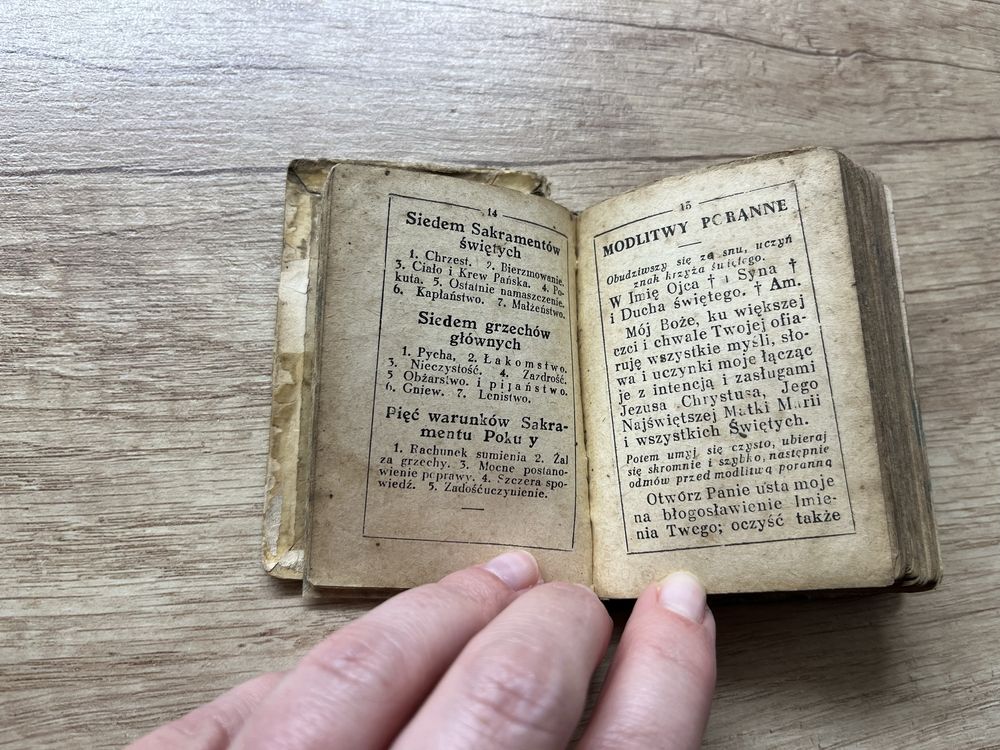 14
Siedem Sakramentów
świętych
1. Chrzest. 2. Bierzmowanie.
3. Ciało i Krew Pańska. 4. Po-
kuta. 5. Ostatnie namaszczenie.
6. Kapłaństwo. 7. Małżeństwo.
Siedem grzechów
głównych
1. Pycha, 2. Łakomstwo.
3. Nieczystość. 4. Zazdrość.
5 Obżarstwo. i pijaństwo.
6. Gniew. 7. Lenistwo.
Pięć warunków Sakra-
mentu Poku y
1. Rachunek sumienia 2. Żal
za grzechy. 3. Mocne postano-
wienie poprawy. 4. Szczera spo-
wiedź. 5. Zadośćuczynienie.
15
MODLITWY PORANNE
Obudziwszy się ze snu, uczyń
znak krzyża świętego.
W Imię Ojca † i Syna †
i Ducha świętego. † Am.
Mój Boże, ku większej
czci i chwale Twojej ofia-
ruję wszystkie myśli, sło-
wa i uczynki moje łącząc
je z intencją i zasługami
Jezusa Chrystusa, Jego
Najświętszej Matki Marii
i wszystkich Świętych.
Potem umyj się czysto, ubieraj
się skromnie i szybko, następnie
odmów przed modlitwą poranną
Otwórz Panie usta moje
na błogosławienie Imie-
nia Twego; oczyść także